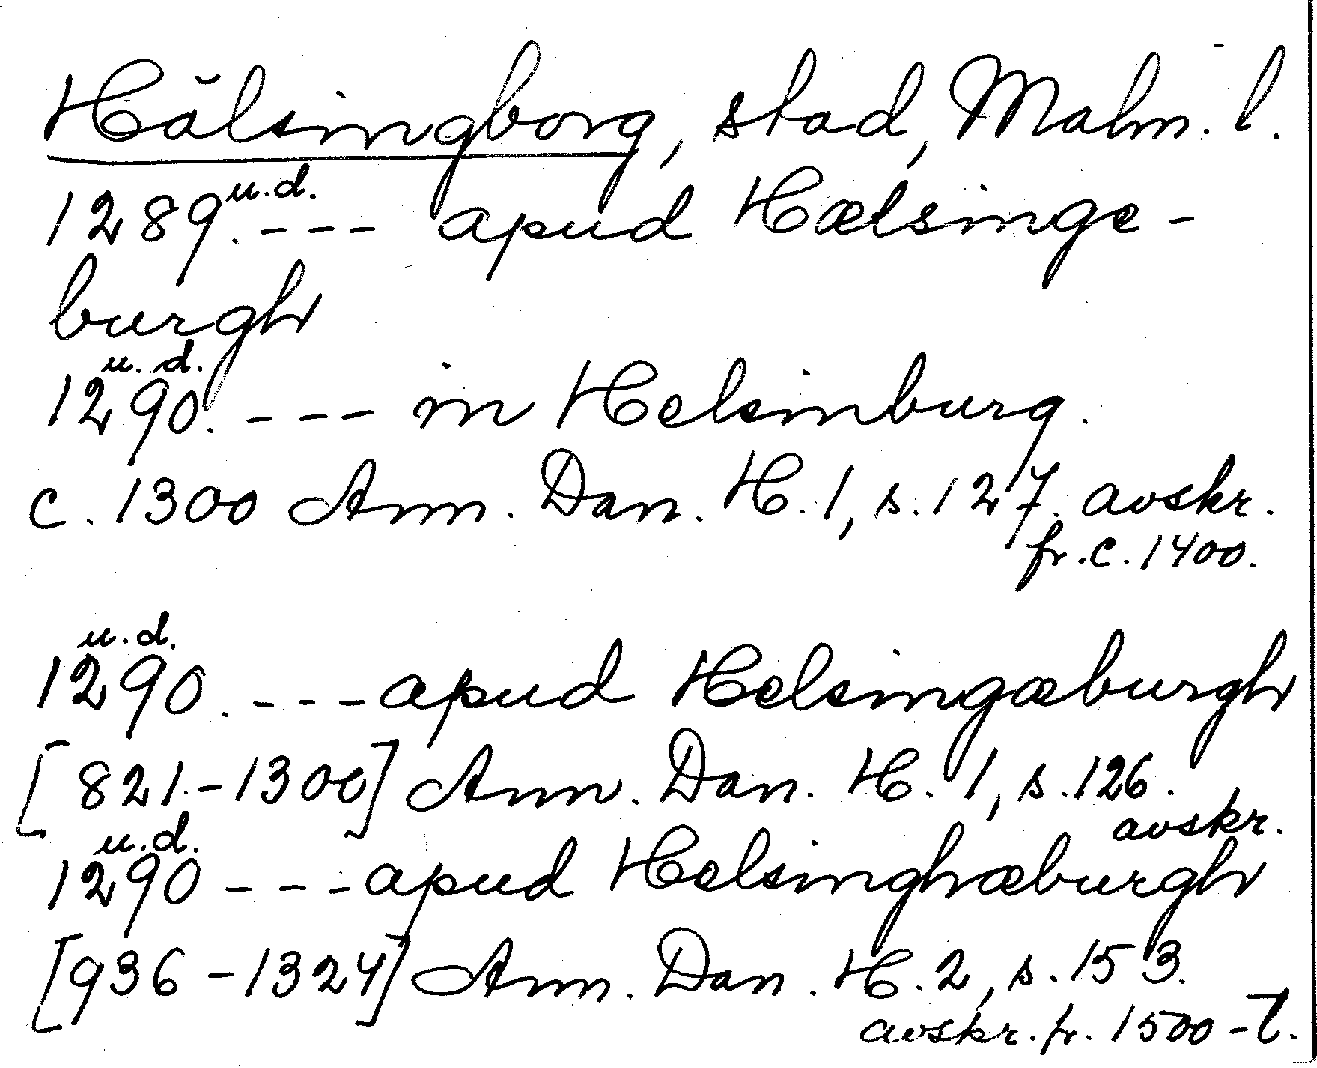 Hälsingborg, stad, Malm. l.
1289 u.d. --- apud Hælsinge-
burgh
1290 u.d. --- in Helsinburg.
c. 1300 Ann. Dan. H. 1, s. 127. avskr.
fr. c. 1400.
1290 u.d. --- apud Helsingæburgh
[821-1300] Ann. Dan. H. 1, s. 126.
avskr.
1290 u.d. --- apud Helsinghæburgh
[936-1324] Ann. Dan. H. 2, s. 153.
avskr. fr. 1500-t.